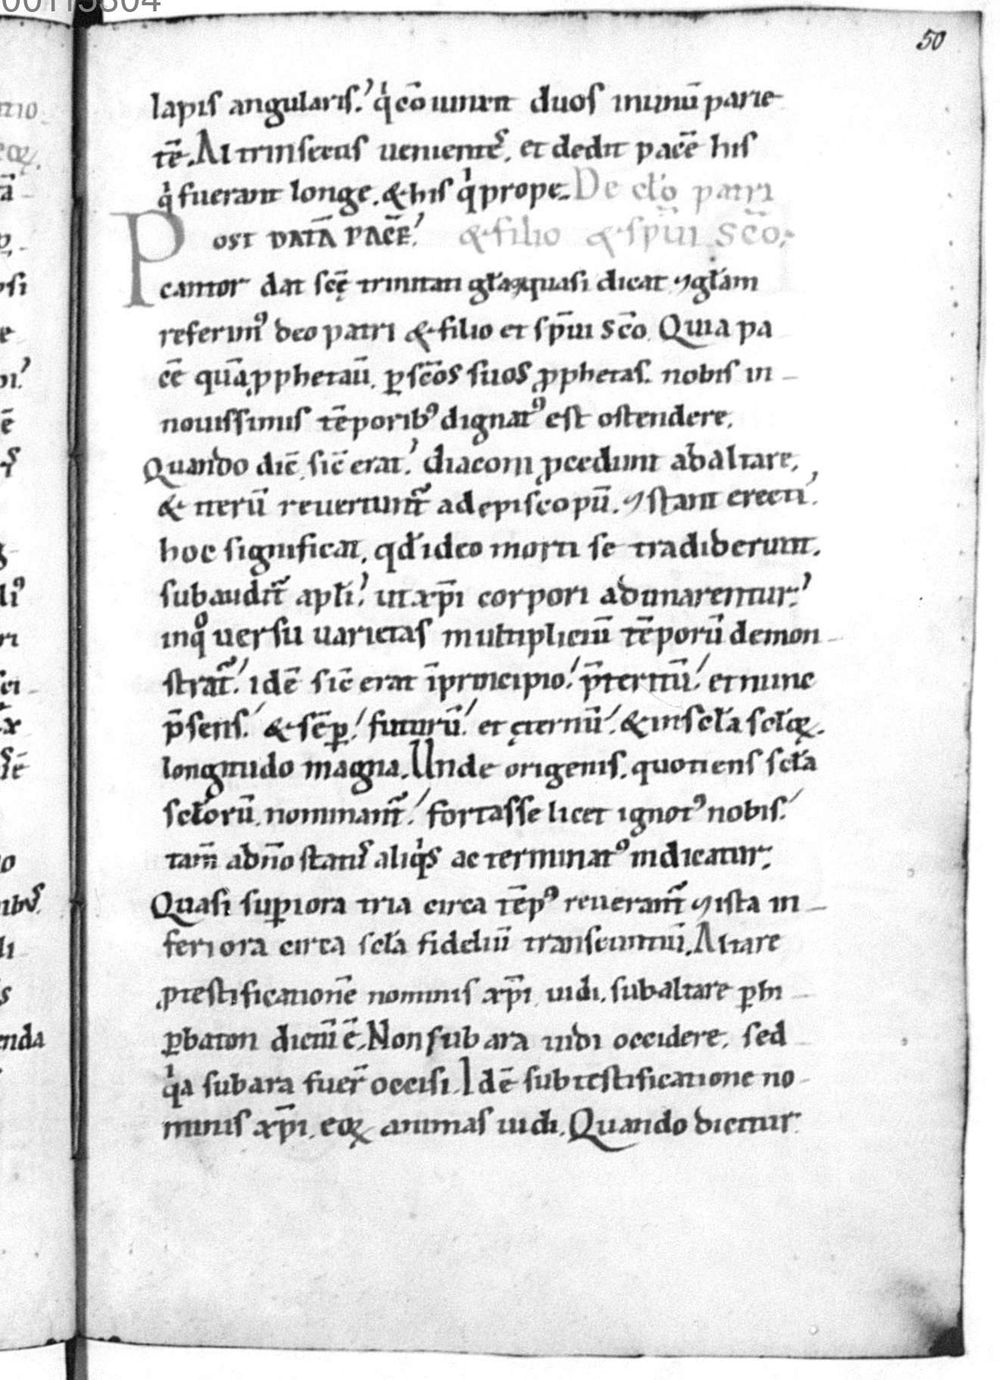 00113804
50
lapis angularis. q̍ cōiunxit duos inunū parie
tē. Altrinsecus uenientes. et dedit pacē his
q̍ fuerant longe. & his q̍ prope. De głō patri
Post datā pacē & filio & sp̄ui sc̄o.
cantor dat sc̄ę trinitati gła quasi dicat ⁊głam
referim᷒ deo patri & filio et sp̄ui sc̄o. Quia pa
cē quā ꝓphetauī. ꝑ sc̄os suos ꝓphetas. nobis in
nouissimis tēporib᷒ dignat᷒ est ostendere.
Quando dic̄. sic̄ erat. diaconi ꝓcedunt ad altare.
& iterū reuertunt᷑ ad episcopū. ⁊ stant erecti.
hoc significat. qđ ideo morti se tradiderunt.
subaudit᷑ apłi. ut xp̄i corpori adunarentur.
inq̊ uersu uarietas multipliciū tēporū demon
strat᷑. idē sic̄ erat īprincipio. p̄teritū. et nunc
p̄sens. & sēꝑ. futurū. et ęternū. & in scła scłoꝝ.
longitudo magna. Unde origenis. quotiens scła
scłorū. nominant᷑. fortasse licet ignot᷒ nobis.
tam̄ adn̄o statis᷑ aliq̍s ac terminat᷒ indicatur.
Quasi suꝑiora tria circa tēp᷒ reuerant᷑ ⁊ ista in
feriora circa scła fideliū transeuntiū. Altare
ꝓtestificationē nominis xp̄i uidi. sub altare ꝑ hi
ꝑbaton dictū ē. Non sub ara uidi occidere. sed
q̍a sub ara fuer̄ occisi. Idē sub testificatione no
minis xp̄i. eoꝝ animas uidi. Quando dicitur